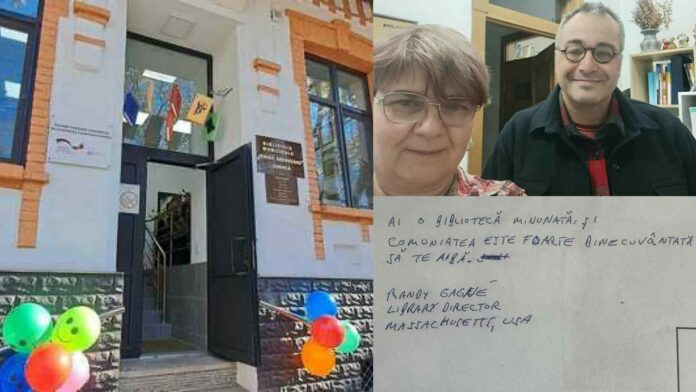 BIBLIOTECA
MUNICIPALĂ
AI O BIBLIOTECĂ MINUNATĂ, ȘI
COMUNIATEA ESTE FOARTE BINECUVÂNTATĂ
SĂ TE AIBĂ.
RANDY GAGNÉ
LIBRARY DIRECTOR
MASSACHUSETTS, USA